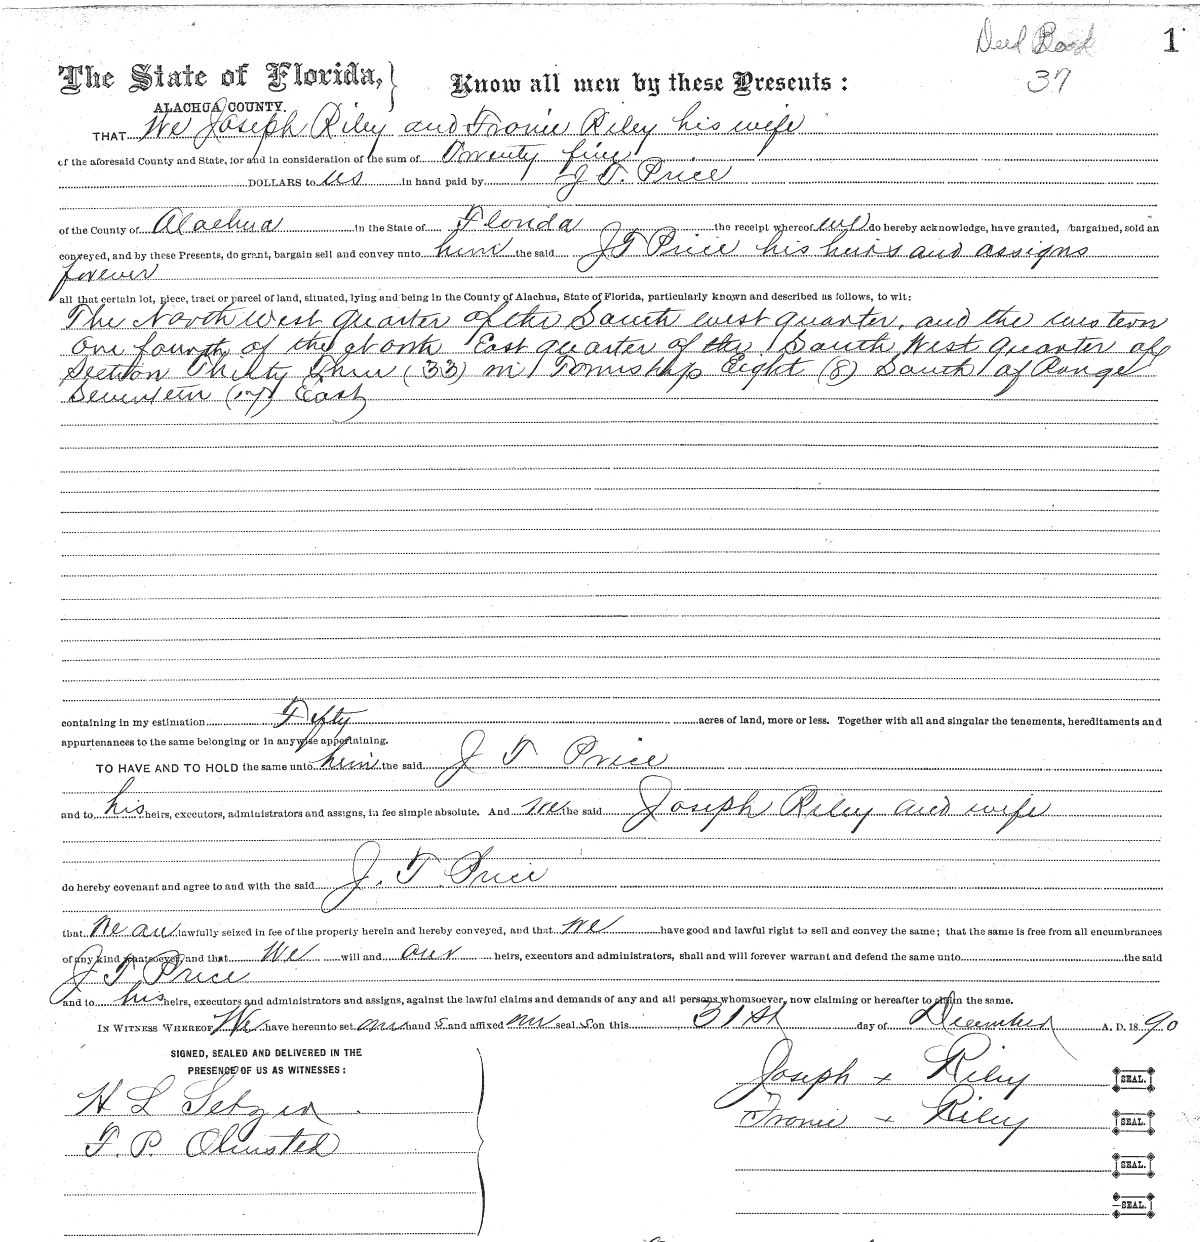 Deed Book 1
37
The State of Florida, } Know all men by these Presents :
ALACHUA COUNTY.
THAT We Joseph Riley and Fronie Riley his wife
of the aforesaid County and State, for and in consideration of the sum of Twenty five
DOLLARS to us in hand paid by J. T. Price
of the County of Alachua in the State of Florida the receipt whereof we do hereby acknowledge, have granted, bargained, sold an
conveyed, and by these Presents, do grant, bargain sell and convey unto him the said J T Price his heirs and assigns
forever
all that certain lot, piece, tract or parcel of land, situated, lying and being in the County of Alachua, State of Florida, particularly known and described as follows, to wit:
The North West quarter of the South west quarter, and the western
one fourth of the North East quarter of the South West quarter of
Section Thirty Three (33) in Township Eight (8) South of Range
Seventeen (17) East
containing in my estimation Fifty acres of land, more or less. Together with all and singular the tenements, hereditaments and
appurtenances to the same belonging or in anywise appertaining.
TO HAVE AND TO HOLD the same unto him the said J T Price
and to his heirs, executors, administrators and assigns, in fee simple absolute. And we the said Joseph Riley and wife
do hereby covenant and agree to and with the said J. T. Price
that we are lawfully seized in fee of the property herein and hereby conveyed, and that we have good and lawful right to sell and convey the same; that the same is free from all encumbrances
of any kind whatsoever, and that We will and our heirs, executors and administrators, shall and will forever warrant and defend the same unto the said
J T Price
and to his heirs, executors and administrators and assigns, against the lawful claims and demands of any and all persons whomsoever, now claiming or hereafter to claim the same.
IN WITNESS WHEREOF We have hereunto set our hand s and affixed our seal s on this 31st day of December A. D. 18 90
SIGNED, SEALED AND DELIVERED IN THE
PRESENCE OF US AS WITNESSES :
Joseph + Riley SEAL.
H L Setzer
Fronie + Riley SEAL.
F. P. Olmsted
SEAL.
SEAL.